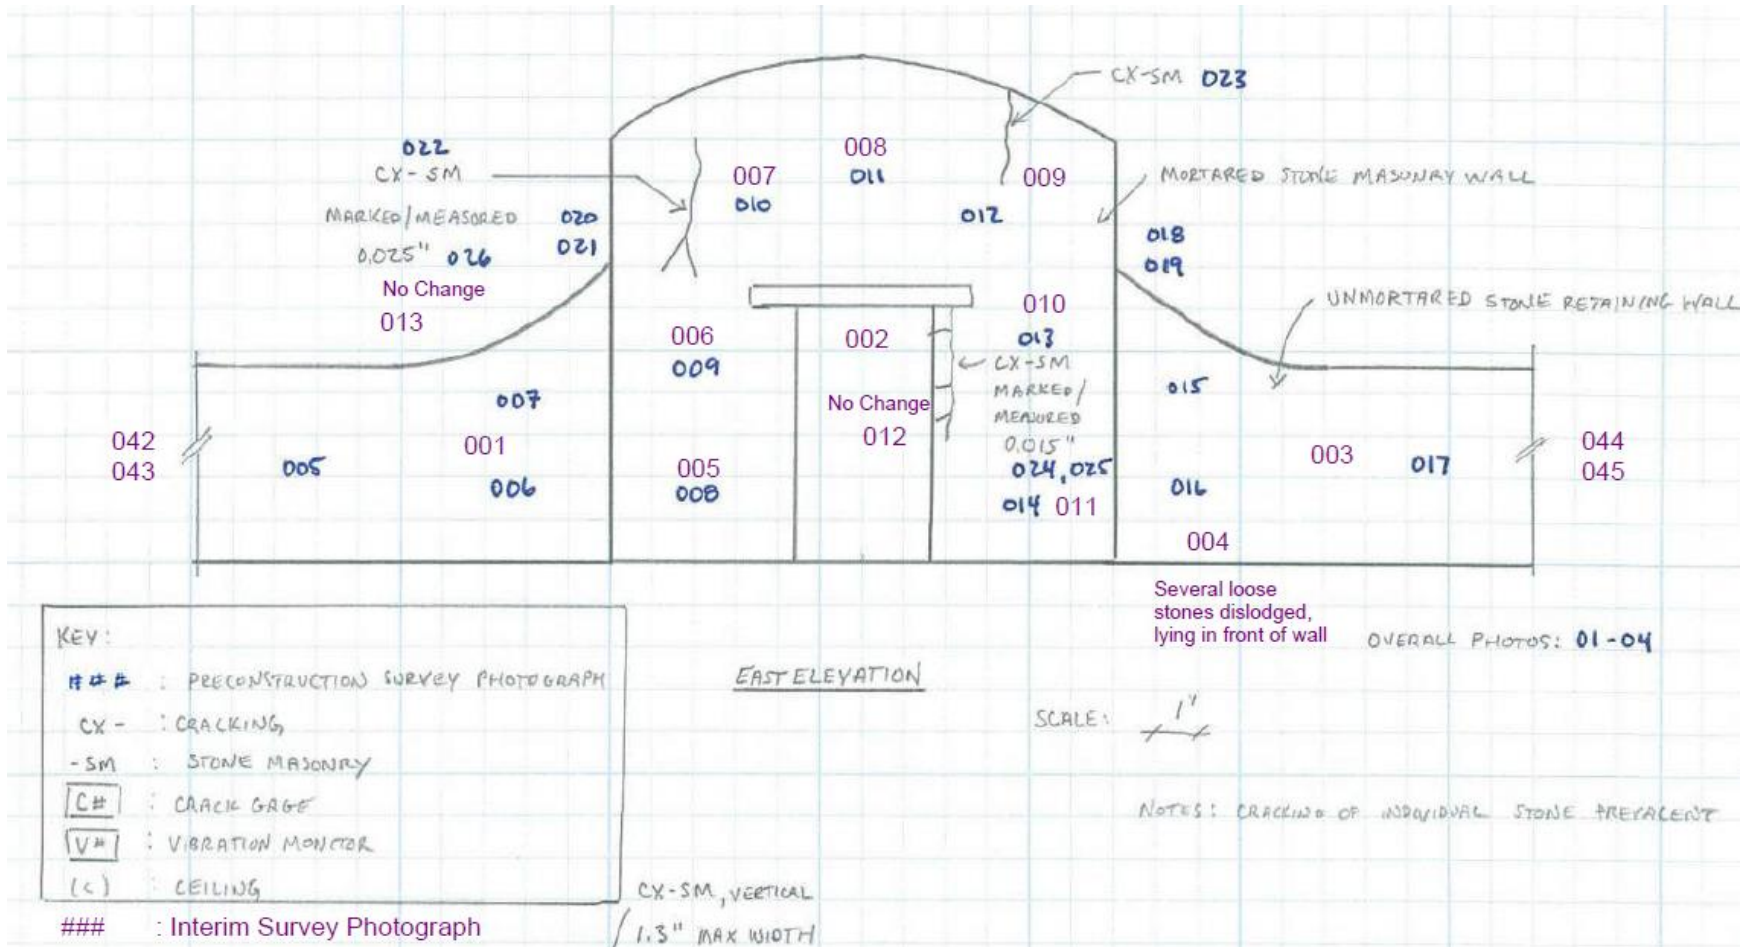 CX-SM 023
022
CX-SM
MARKED/MEASURED
0.025" 026
No Change
013
020
021
007
010
008
011
009
012
MORTARED STONE MASONRY WALL
018
019
UNMORTARED STONE RETAINING WALL
006
009
002
010
013
CX-SM
MARKED/
MEASURED
0.015"
024, 025
014 011
No Change
012
005
008
042
043
005
007
001
006
015
016
003
017
004
044
045
Several loose
stones dislodged,
lying in front of wall
OVERALL PHOTOS: 01-04
KEY:
### : PRECONSTRUCTION SURVEY PHOTOGRAPH
CX- : CRACKING
-SM : STONE MASONRY
C# : CRACK GAGE
V# : VIBRATION MONITOR
(C) : CEILING
### : Interim Survey Photograph
EAST ELEVATION
SCALE: 1'
NOTES: CRACKING OF INDIVIDUAL STONE PREVALENT
CX-SM, VERTICAL
1.3" MAX WIDTH